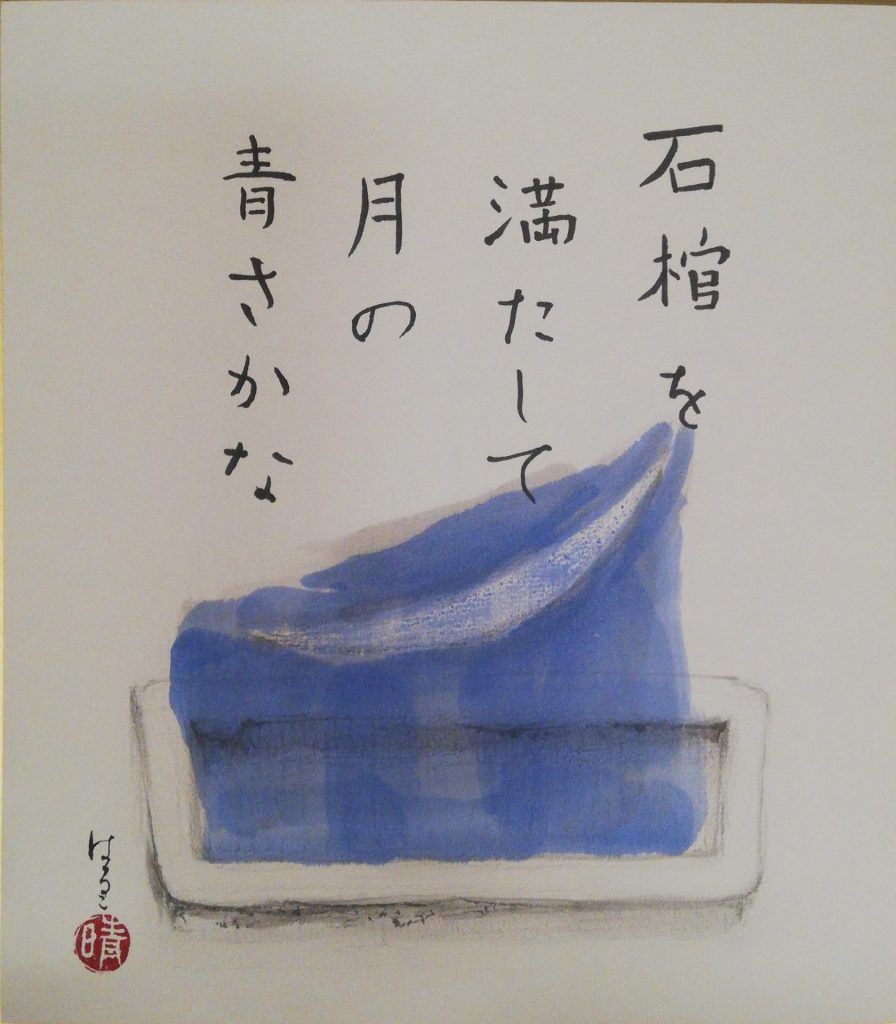 石棺を
満たして
月の
青さかな
はるき
晴